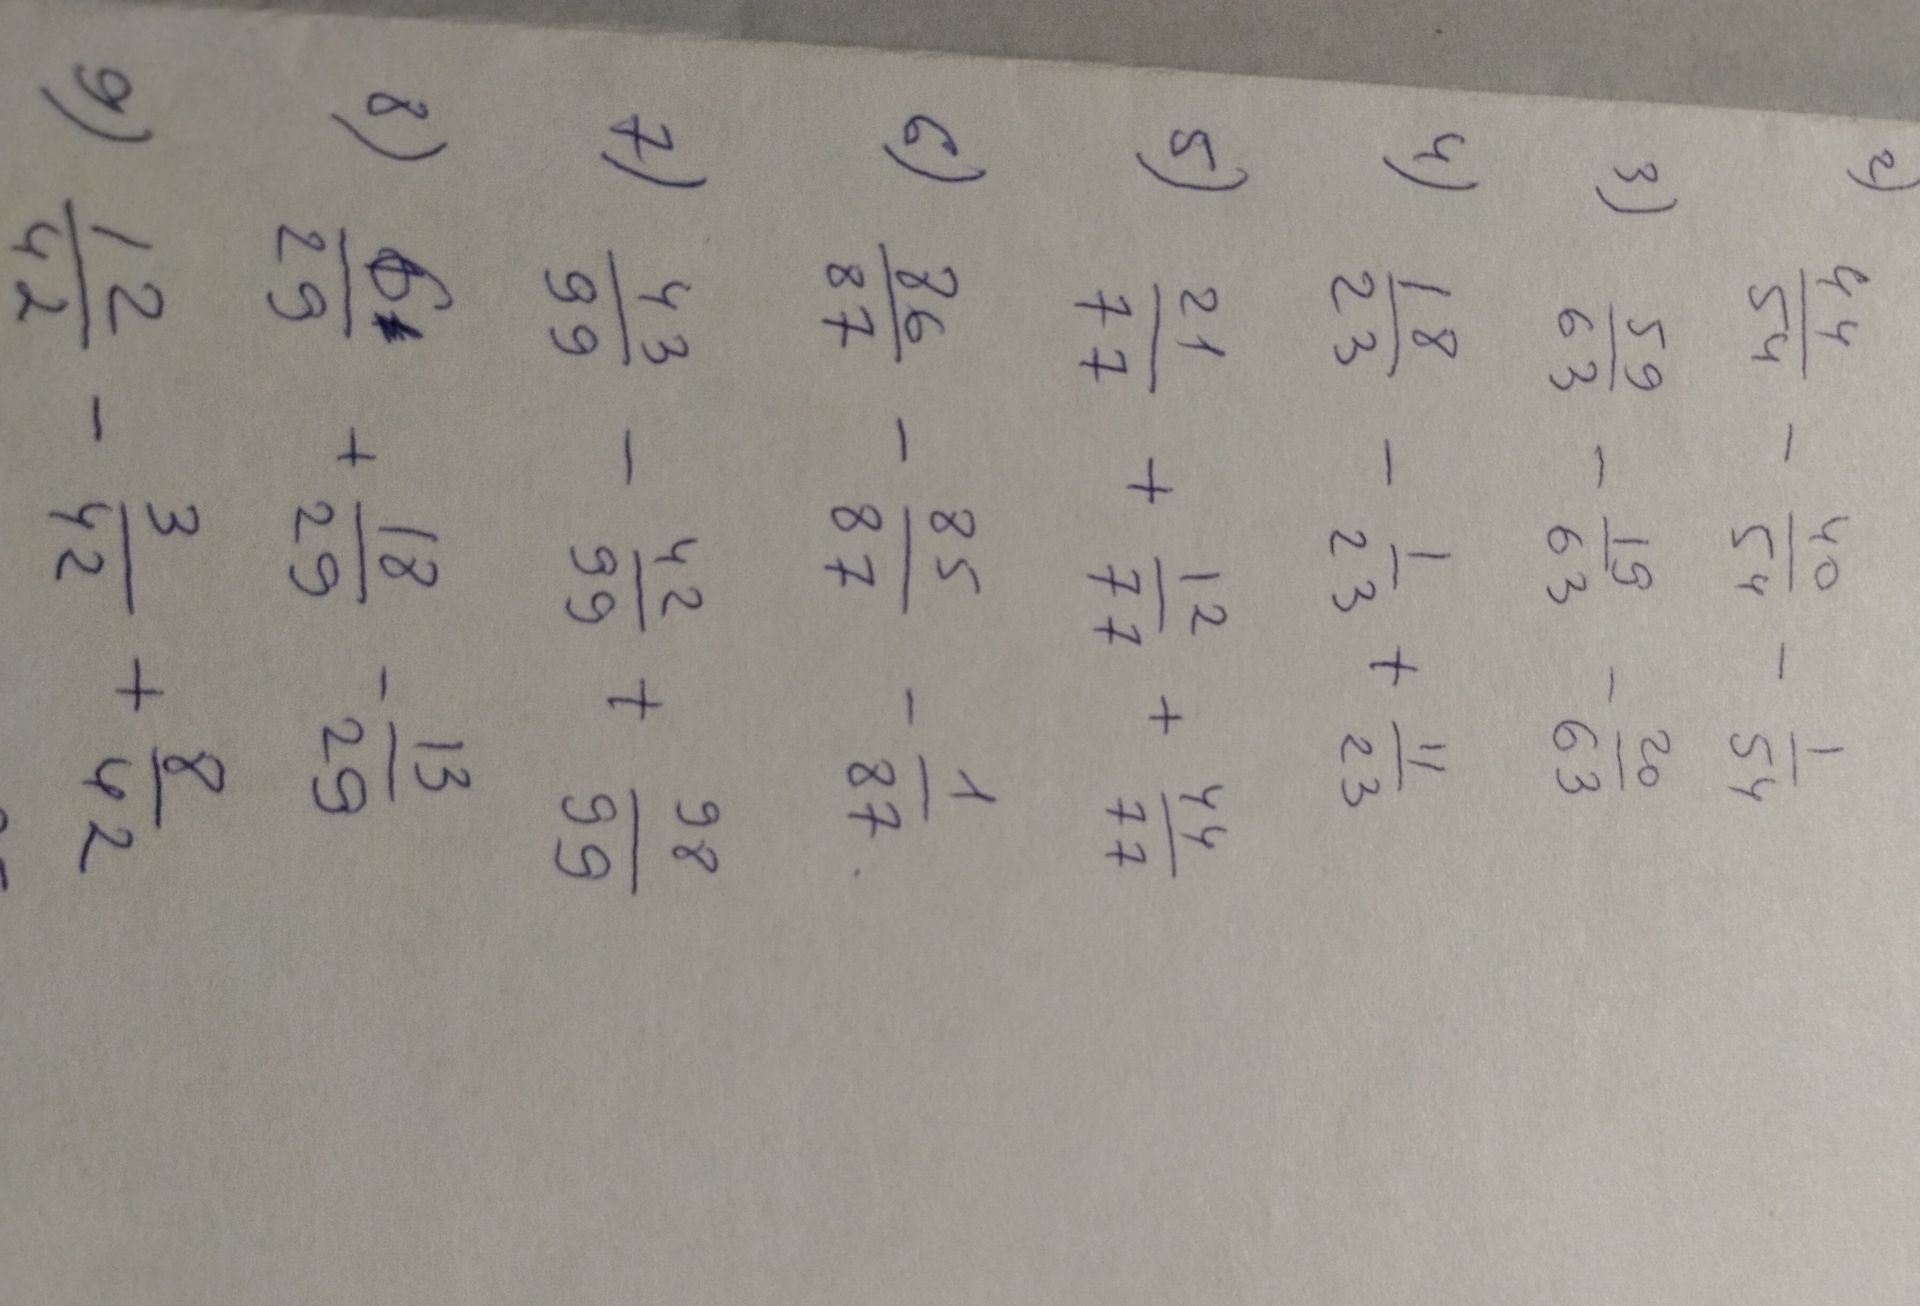 2) 44/54 - 40/54 - 1/54
3) 59/63 - 19/63 - 20/63
4) 18/23 - 1/23 + 11/23
5) 21/77 + 12/77 + 44/77
6) 86/87 - 85/87 - 1/87
7) 43/99 - 42/99 + 98/99
8) 6/29 + 18/29 - 13/29
9) 12/42 - 3/42 + 8/42